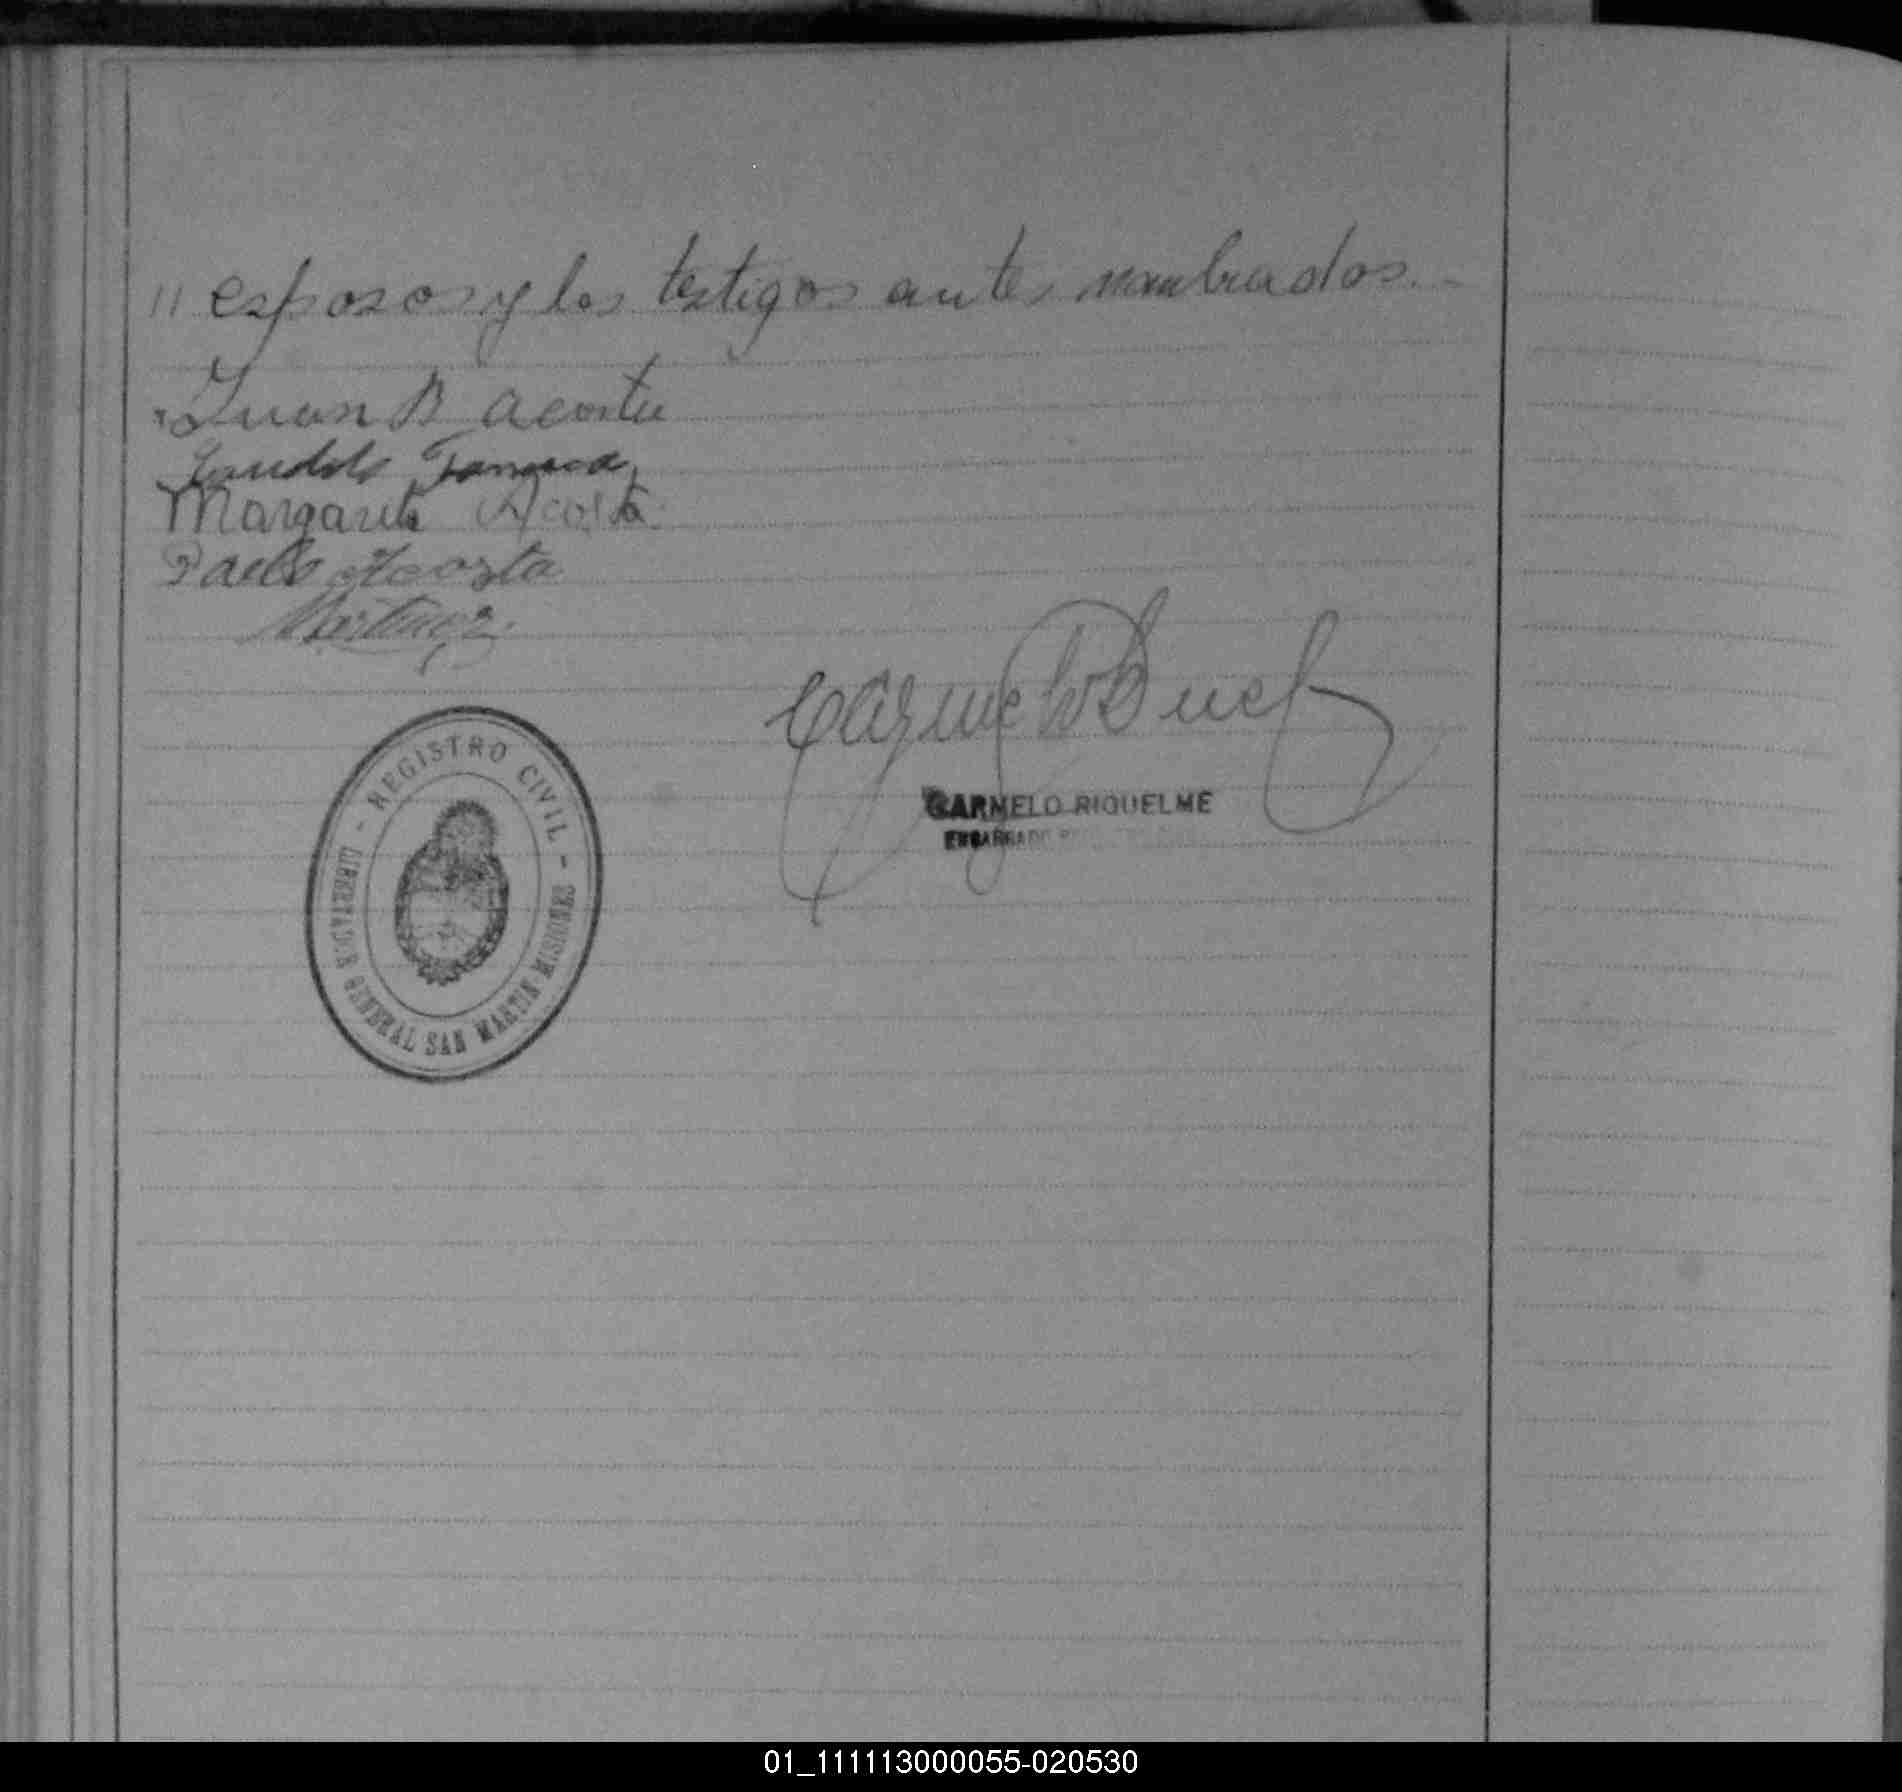 11 esposos y los testigos antes nombrados.-
Juan B Acosta
Margarita Acosta
Pablo Acosta
Martinez
CARMELO RIQUELME
ENCARGADO
- REGISTRO CIVIL -
LIBERTADOR GENERAL SAN MARTIN MISIONES
01_111113000055-020530